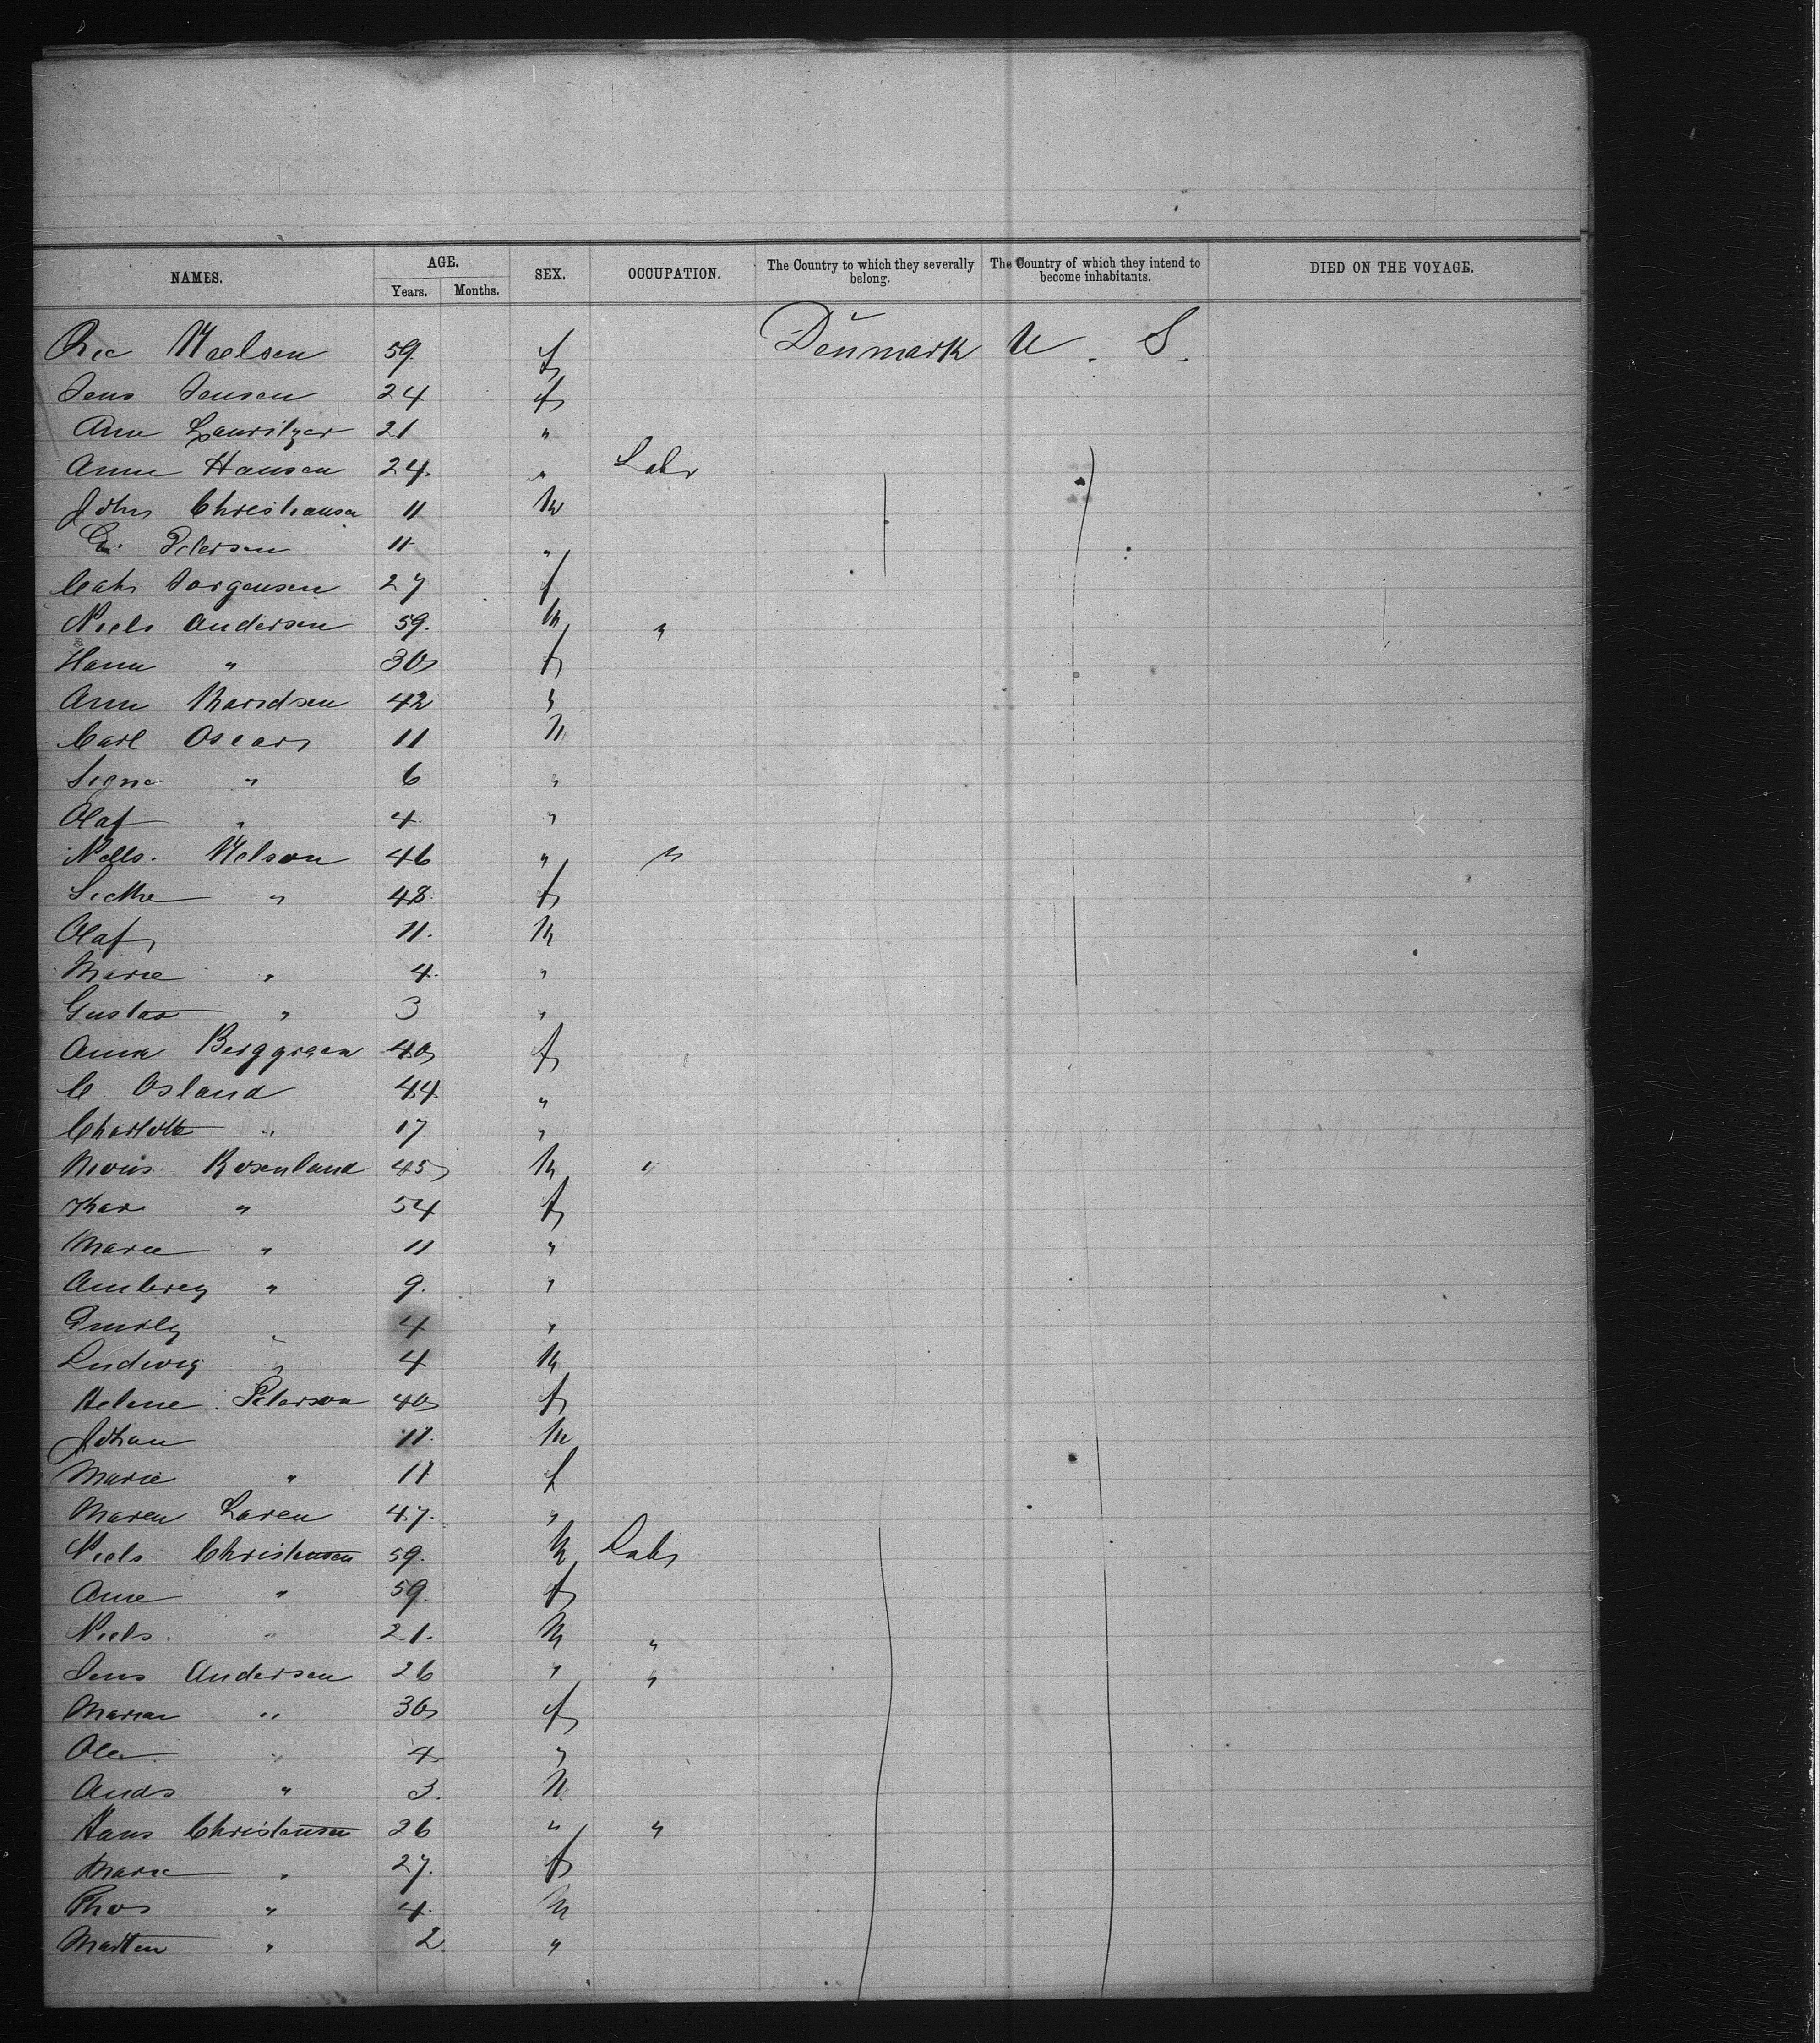 NAMES. AGE. SEX. OCCUPATION. The Country to which they severally belong. The Country of which they intend to become inhabitants. DIED ON THE VOYAGE.
Years. Months.
59 f Denmark U. S.
Jens Jensen 24 f
Ane Lauritzen 21 "
Anne Hansen 24. " Labr
John Christiansen 11 M
Petersen 11 "
Cath Jorgensen 27 f
Niels Andersen 59. M "
Hann " 30 f
Ann 42 "
Carl Oscar 11 M
Signe " 6 "
Olaf " 4 "
Nells. Nelson 46 " "
" 48 f
Olaf 11. M
Marie " 4. "
Gustav " 3 "
Anna Berggreen 40 f
C Osland 44 "
Charlotte " 17 "
Rosenland 45 M "
" 54 f
Marie " 11 "
" 9. "
Emely " 4 "
Ludwig " 4 M
Helene Peterson 40 f
Johan 11. M
Marie " 11 f
Maren Laren 47. "
Niels Christensen 59. M Labr
Ane " 59. f
Niels " 21. M "
Jens Andersen 26 " "
Marian " 30 f
Ole " 4 "
Ands " 3. M
Hans Christensen 26 " "
Marie " 27. f
Thos " 4. M
Marten " 2 "